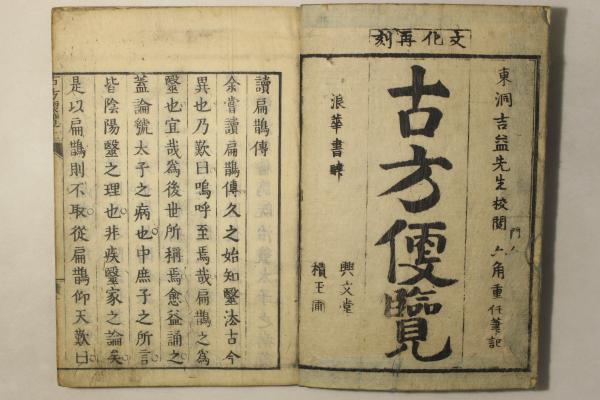 文化再刻
東洞吉益先生校閲 六角重任筆記
古方便覽
浪華書肆
興文堂
積玉圃
讀扁鵲傳
余嘗讀扁鵲傳久之始知毉法古今
異也乃歎曰嗚呼至焉哉扁鵲之為
毉也宜哉為後世所稱焉愈益誦之
蓋論虢太子之病也中庶子之所言
皆陰陽毉之理也非疾毉家之論矣
是以扁鵲則不取從扁鵲仰天歎曰